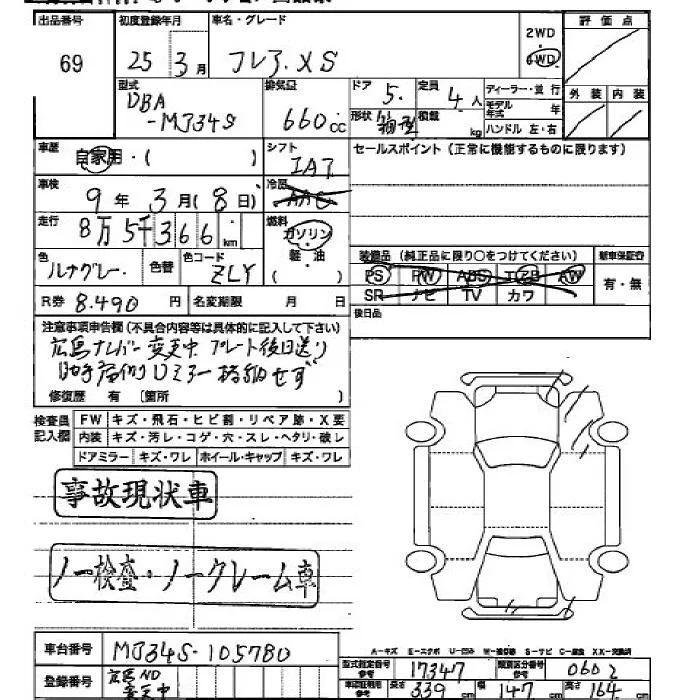 出品番号 初度登録年月 車名・グレード 2WD 評価点
69 25年 3月 フレア.XS 4WD
型式 排気量 ドア 定員 ディーラー・並行 外装 内装
DBA 5. 4人 モデル年式 年
-MJ34S 660cc 形状 箱型 積載 kg ハンドル 左・右
車歴 自家用・( ) シフト IAT セールスポイント（正常に機能するものに限ります）
車検 9年 3月(8日) 冷房 AAC
走行 8万5千366km 燃料 ガソリン 装備品（純正品に限り○をつけてください） 新車保証書
色 ルナグレー. 色替 色コード ZLY 軽油 PS PW ABS エアB AW 有・無
( ) SR ナビ TV カワ
R券 8.490円 名変期限 月 日 後日品
注意事項申告欄（不具合内容等は具体的に記入して下さい）
広島ナンバー変更中 プレート後日送り
助手席側Dミラー格納せず
修復歴 有 〔箇所 〕
検査員記入欄 FW キズ・飛石・ヒビ割・リペア跡・X要
内装 キズ・汚レ・コゲ・穴・スレ・ヘタリ・破レ
ドアミラー キズ・ワレ ホイール・キャップ キズ・ワレ
事故現状車
ノー検査・ノークレーム車
A-キズ E-エクボ U-凹み W-補修跡 S-サビ C-腐食 XX-交換済
車台番号 MJ34S-105780 型式指定番号 参考 17347 類別区分番号 参考 0602
登録番号 広島ND 変更中 車検証明用 参考 長さ 339cm 幅 147cm 高さ 164cm